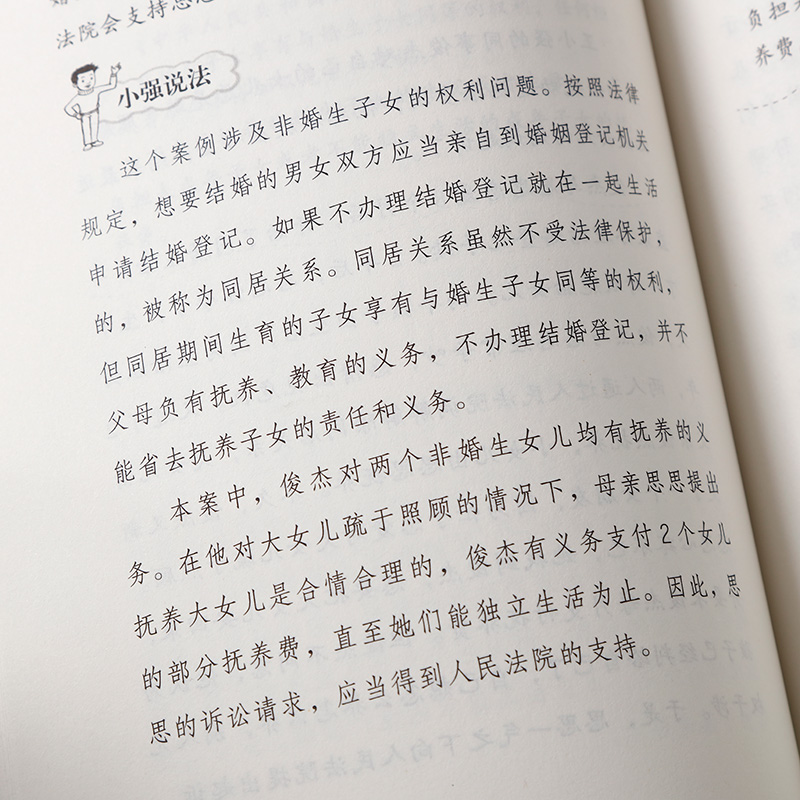 法院会支持思思
小强说法
这个案例涉及非婚生子女的权利问题。按照法律
规定，想要结婚的男女双方应当亲自到婚姻登记机关
申请结婚登记。如果不办理结婚登记就在一起生活
的，被称为同居关系。同居关系虽然不受法律保护，
但同居期间生育的子女享有与婚生子女同等的权利，
父母负有抚养、教育的义务，不办理结婚登记，并不
能省去抚养子女的责任和义务。
本案中，俊杰对两个非婚生女儿均有抚养的义
务。在他对大女儿疏于照顾的情况下，母亲思思提出
抚养大女儿是合情合理的，俊杰有义务支付2个女儿
的部分抚养费，直至她们能独立生活为止。因此，思
思的诉讼请求，应当得到人民法院的支持。
负担
养费